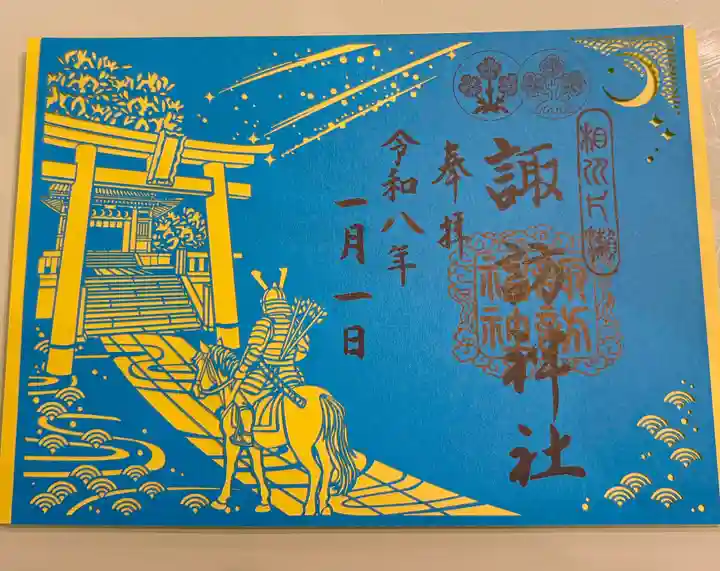 相州片瀬
諏訪神社
諏訪
神社
奉拝
令和八年
一月一日